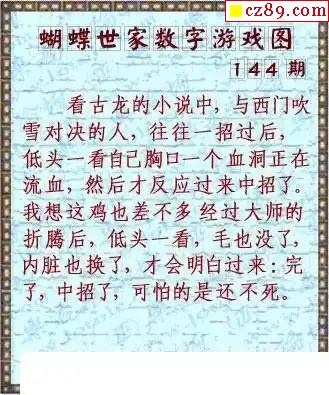 cz89.com
蝴蝶世家数字游戏图
144期
看古龙的小说中，与西门吹
雪对决的人，往往一招过后，
低头一看自己胸口一个血洞正在
流血，然后才反应过来中招了。
我想这鸡也差不多经过大师的
折腾后，低头一看，毛也没了，
内脏也换了，才会明白过来：完
了，中招了，可怕的是还不死。